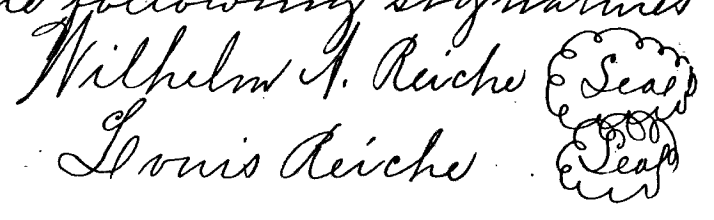 following signatures
Wilhelm A. Reiche Seal
Louis Reiche Seal